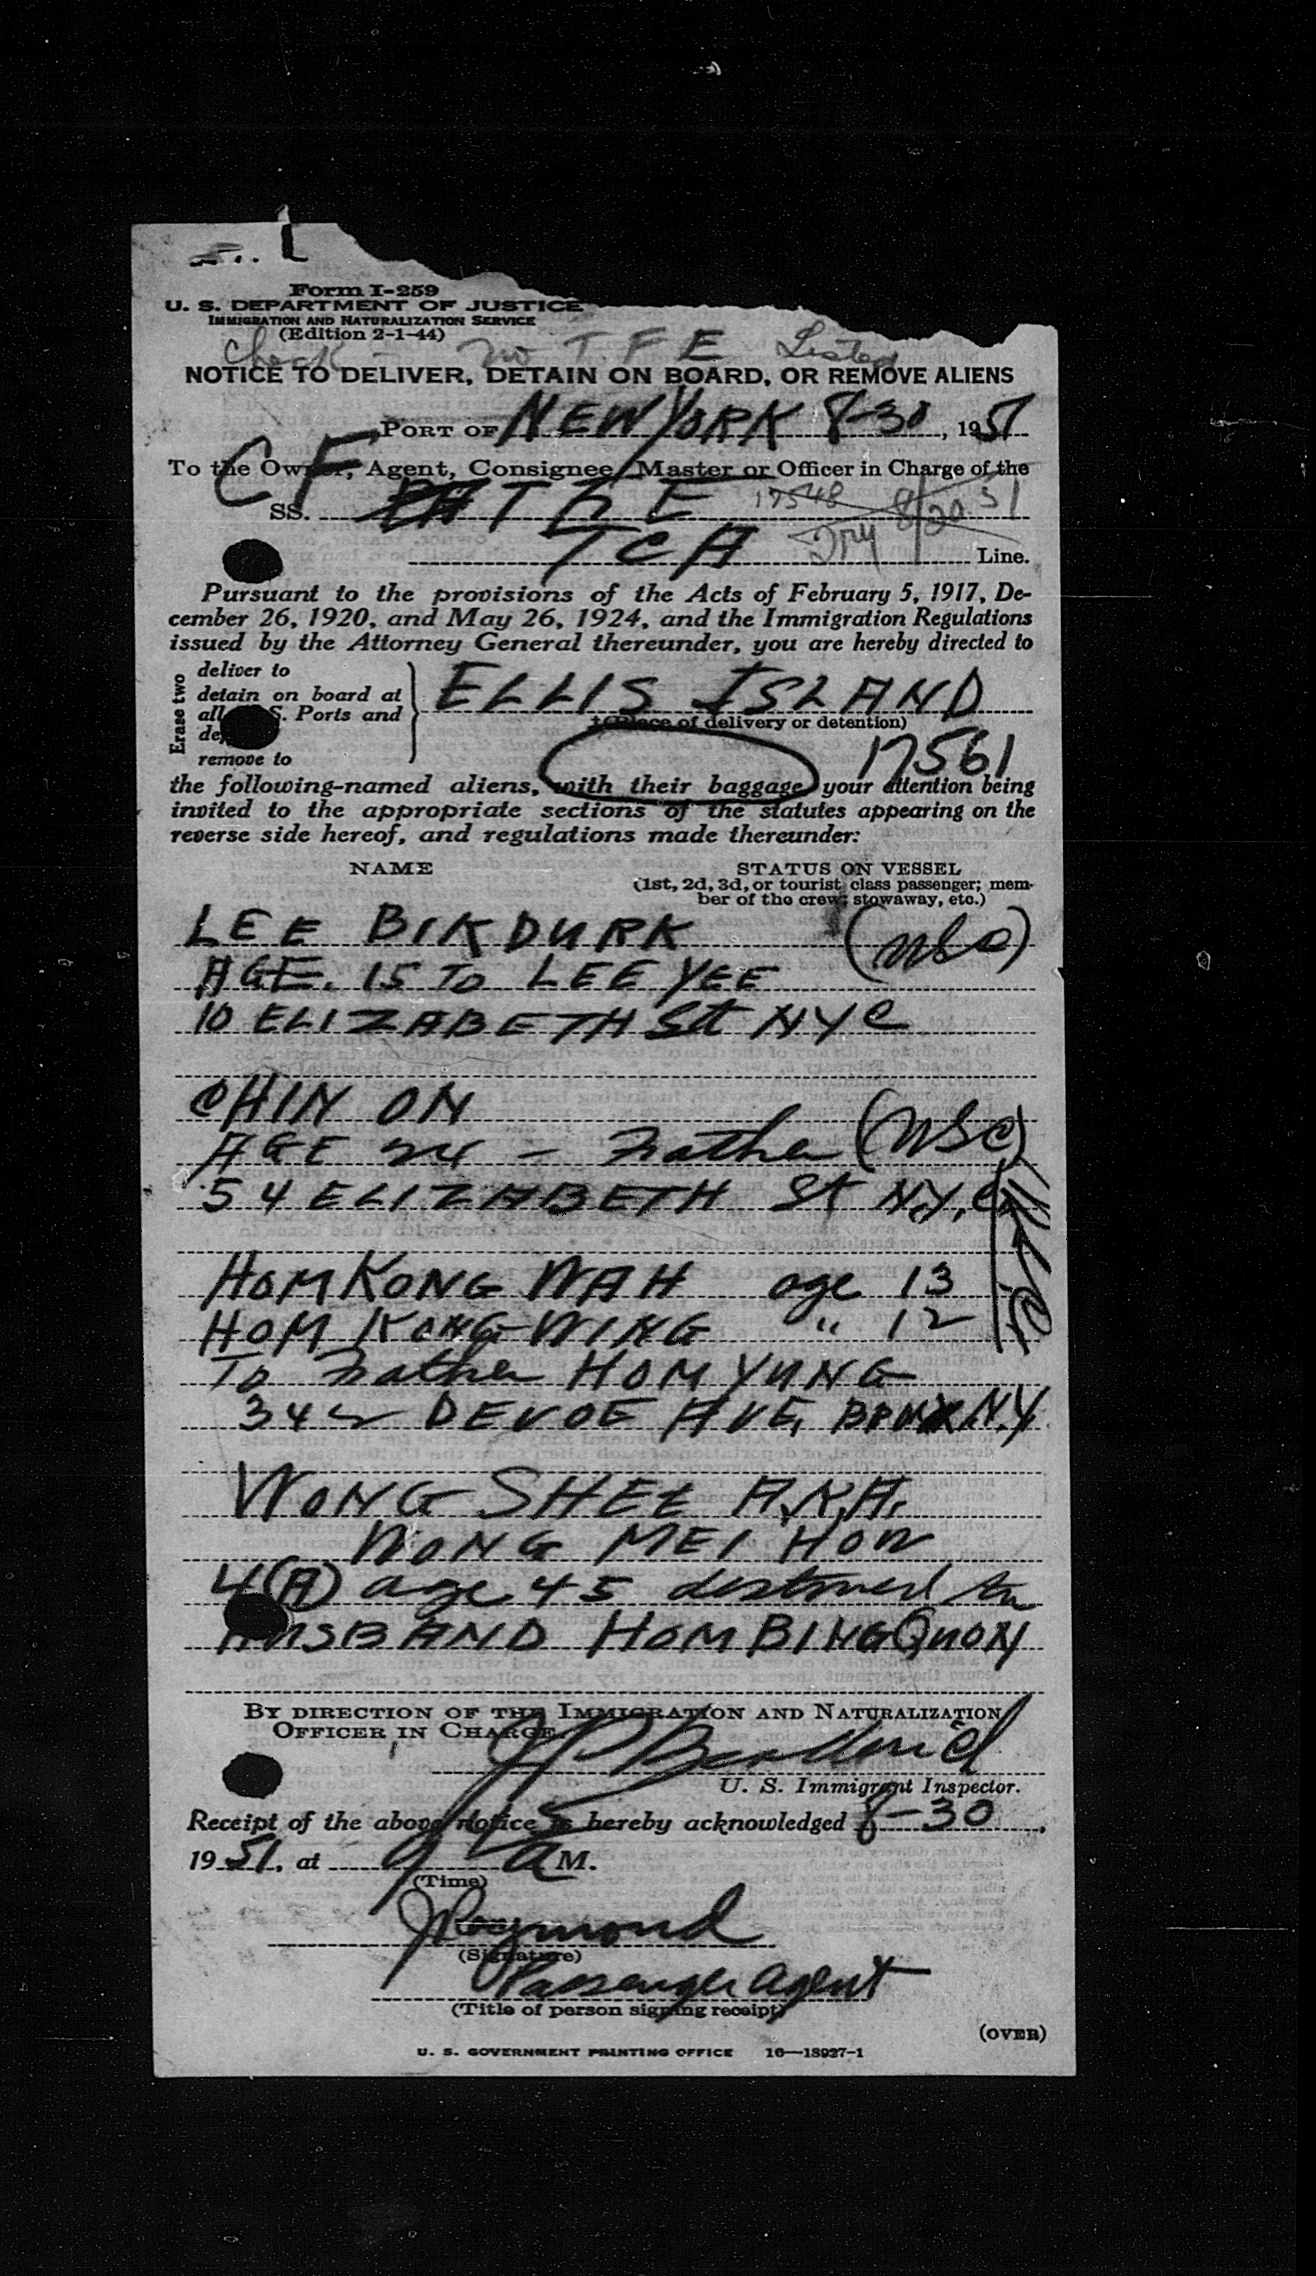 Form I-259
U. S. DEPARTMENT OF JUSTICE
IMMIGRATION AND NATURALIZATION SERVICE
(Edition 2-1-44)
Check - no T.F.E Listed
NOTICE TO DELIVER, DETAIN ON BOARD, OR REMOVE ALIENS
PORT OF NEW YORK 8-30, 1951
To the Owner, Agent, Consignee, Master or Officer in Charge of the
SS. CF THE 17548
TCA Try 8/30 51 Line.
Pursuant to the provisions of the Acts of February 5, 1917, De-
cember 26, 1920, and May 26, 1924, and the Immigration Regulations
issued by the Attorney General thereunder, you are hereby directed to
Erase two
deliver to
detain on board at
all U.S. Ports and
remove to
ELLIS ISLAND
(Place of delivery or detention)
17561
the following-named aliens, with their baggage, your attention being
invited to the appropriate sections of the statutes appearing on the
reverse side hereof, and regulations made thereunder:
NAME STATUS ON VESSEL
(1st, 2d, 3d, or tourist class passenger; mem-
ber of the crew; stowaway, etc.)
LEE BIK DURK (USC)
AGE. 15 TO LEE YEE
10 ELIZABETH St NYC
CHIN ON
AGE 24 - Father (USC)
54 ELIZABETH St N.Y.C
HOM KONG WAH age 13
HOM KONG WING " 12
To Father HOM YUNG
342 DEVOE AVE, BRONX N.Y.
WONG SHEE A.K.A.
WONG MEI HOW
4(A) age 45 destined to
HUSBAND HOM BING QUON
BY DIRECTION OF THE IMMIGRATION AND NATURALIZATION
OFFICER IN CHARGE
U. S. Immigrant Inspector.
Receipt of the above notice is hereby acknowledged 8-30,
1951, at 9 45 AM.
(Time)
J Raymond
(Signature)
Passenger agent
(Title of person signing receipt)
(OVER)
U. S. GOVERNMENT PRINTING OFFICE 16—18927-1